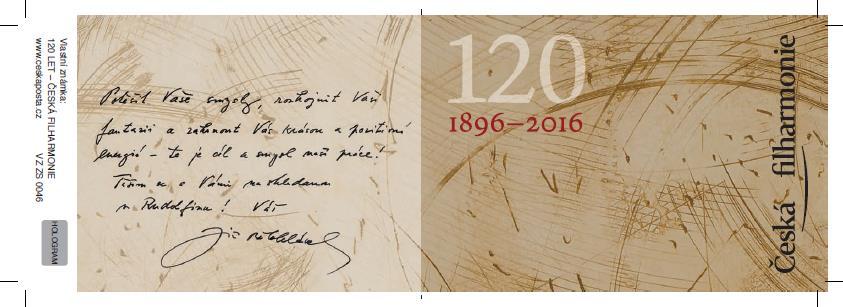 Vlastní známka:
120 LET – ČESKÁ FILHARMONIE
www.ceskaposta.cz VZ ZS 0046
HOLOGRAM
Potěšit Vaše smysly, rozhojnit Vaši
fantazii a zahrnout Vás krásou a pozitivní
energií – to je cíl a smysl naší práce!
Těším se s Vámi na shledanou
v Rudolfinu! Váš
Jiří Bělohlávek
120
1896–2016
Česká filharmonie